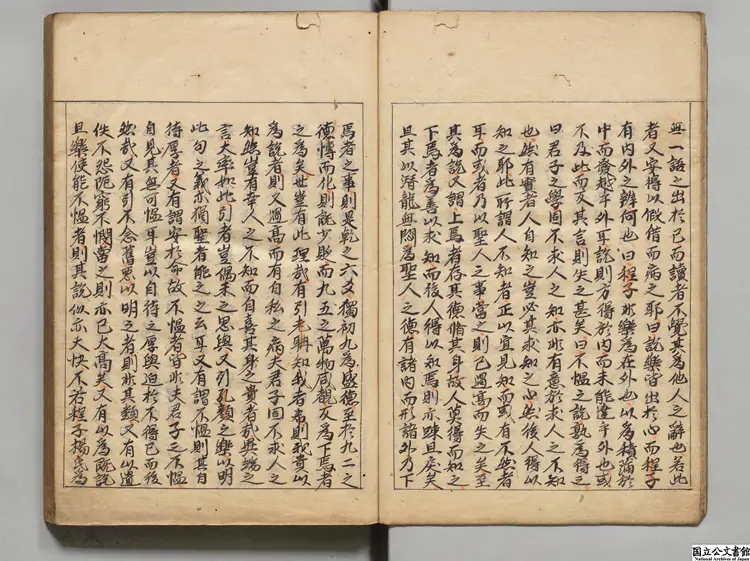 無一語之出於己而讀者不覺其為他人之辭也若此
者又安得以假借而病之耶曰說樂皆出於心而程子
有内外之辨何也曰程子非樂為在外也以為積滿於
中而發越乎外耳說則方得於内而未能達乎外也或
不及此而反其言則失之甚矣曰不慍之說孰為得之
曰君子之學固不求人之知亦非有意於求人之不知
也然有實者人自知之豈必其求知之心然後人得以
知之耶此所謂人不知者正以宜見知而或有不然者
耳而或者乃以聖人之事當之則已過高而失之矣至
其為說又謂上焉者存其德脩其身故人莫得而知之
下焉者為善以求知而後人得以知焉則亦疎且戾矣
且其以潛龍無悶為聖人之德有諸内而形諸外乃下
焉者之事則是乾之六爻獨初九為盛德至於九二之
德博而化則說少貶而九五之萬物咸覩反為下焉者
之為矣世豈有此理哉有引老聃知我者希則我貴以
為說者則又過高而有自私之病夫君子固不求人之
知然豈有幸人之不知而自喜其身之貴者哉異端之
言大率如此引者豈偶未之思與又引孔顏之樂以明
此句之義亦獨聖者能之之云耳又有謂不慍則其自
待厚者又有謂安於命故不慍者皆非夫君子之不慍
自見其無可慍耳豈以自待之厚與迫於不得已而後
然哉又有引不念舊惡以明之者則非其類又有以遺
佚不怨阨窮不憫當之則亦已大高矣又有以為既說
且樂使能不慍者則其說似亦大快不若程子楊氏為
国立公文書館
National Archives of Japan